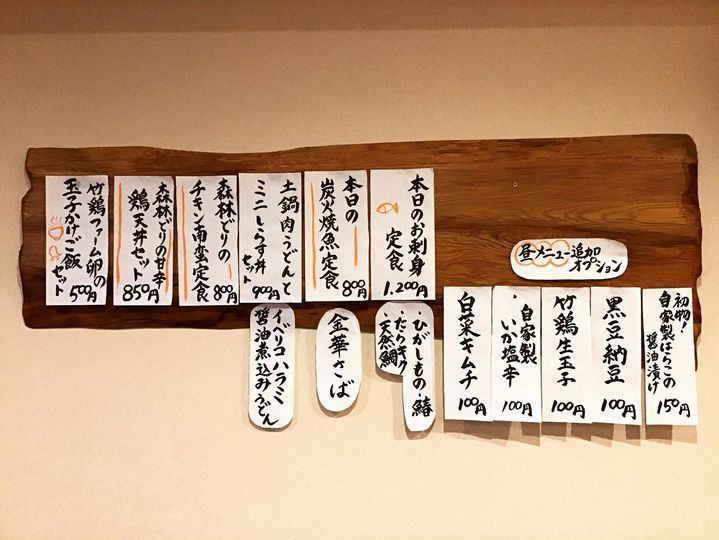 昼メニュー追加
オプション
初物!
自家製はらこの
醤油漬け
150円
黒豆納豆
100円
竹鶏生玉子
100円
自家製
いか塩辛
100円
白菜キムチ
100円
本日のお刺身
定食
1.200円
ひがしもの・鰆
・たらキク
・天然鯛
本日の
炭火焼魚定食
800円
金華さば
土鍋肉うどんと
ミニしらす丼
セット
900円
イベリコハラミ
醤油煮込みうどん
森林どりの
チキン南蛮定食
800円
森林どりの甘辛
鶏天丼セット
850円
竹鶏ファーム卵の
玉子かけご飯
セット
500円